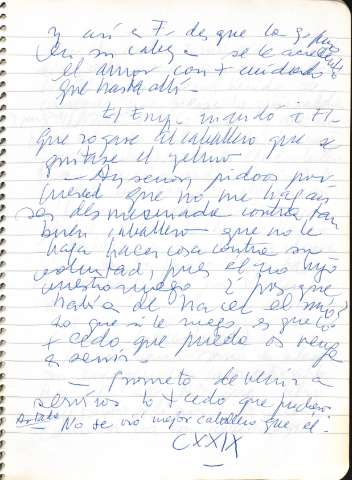 y así a Fl. des que la g. puso
en su cabeça se le acrecentó
el amor con + cuidado
que hasta allí.
El Emp. mandó a Fl-
que rogase al caballero que se
quitase el yelmo
- Ay señor, pidoos por
merced que no me hagan
ser desmesurada contra tan
buen caballero que no le
haga hacer cosa contra su
voluntad, pues él no hizo
vuestro ruego ¿por qué
había de hacer el mío?
Lo que si le ruego es que lo
+ cedo que pueda os venga
a servir.
- Prometo de venir a
serviros lo + cedo que pudiere
No se vió mejor caballero que él.
CXXIX